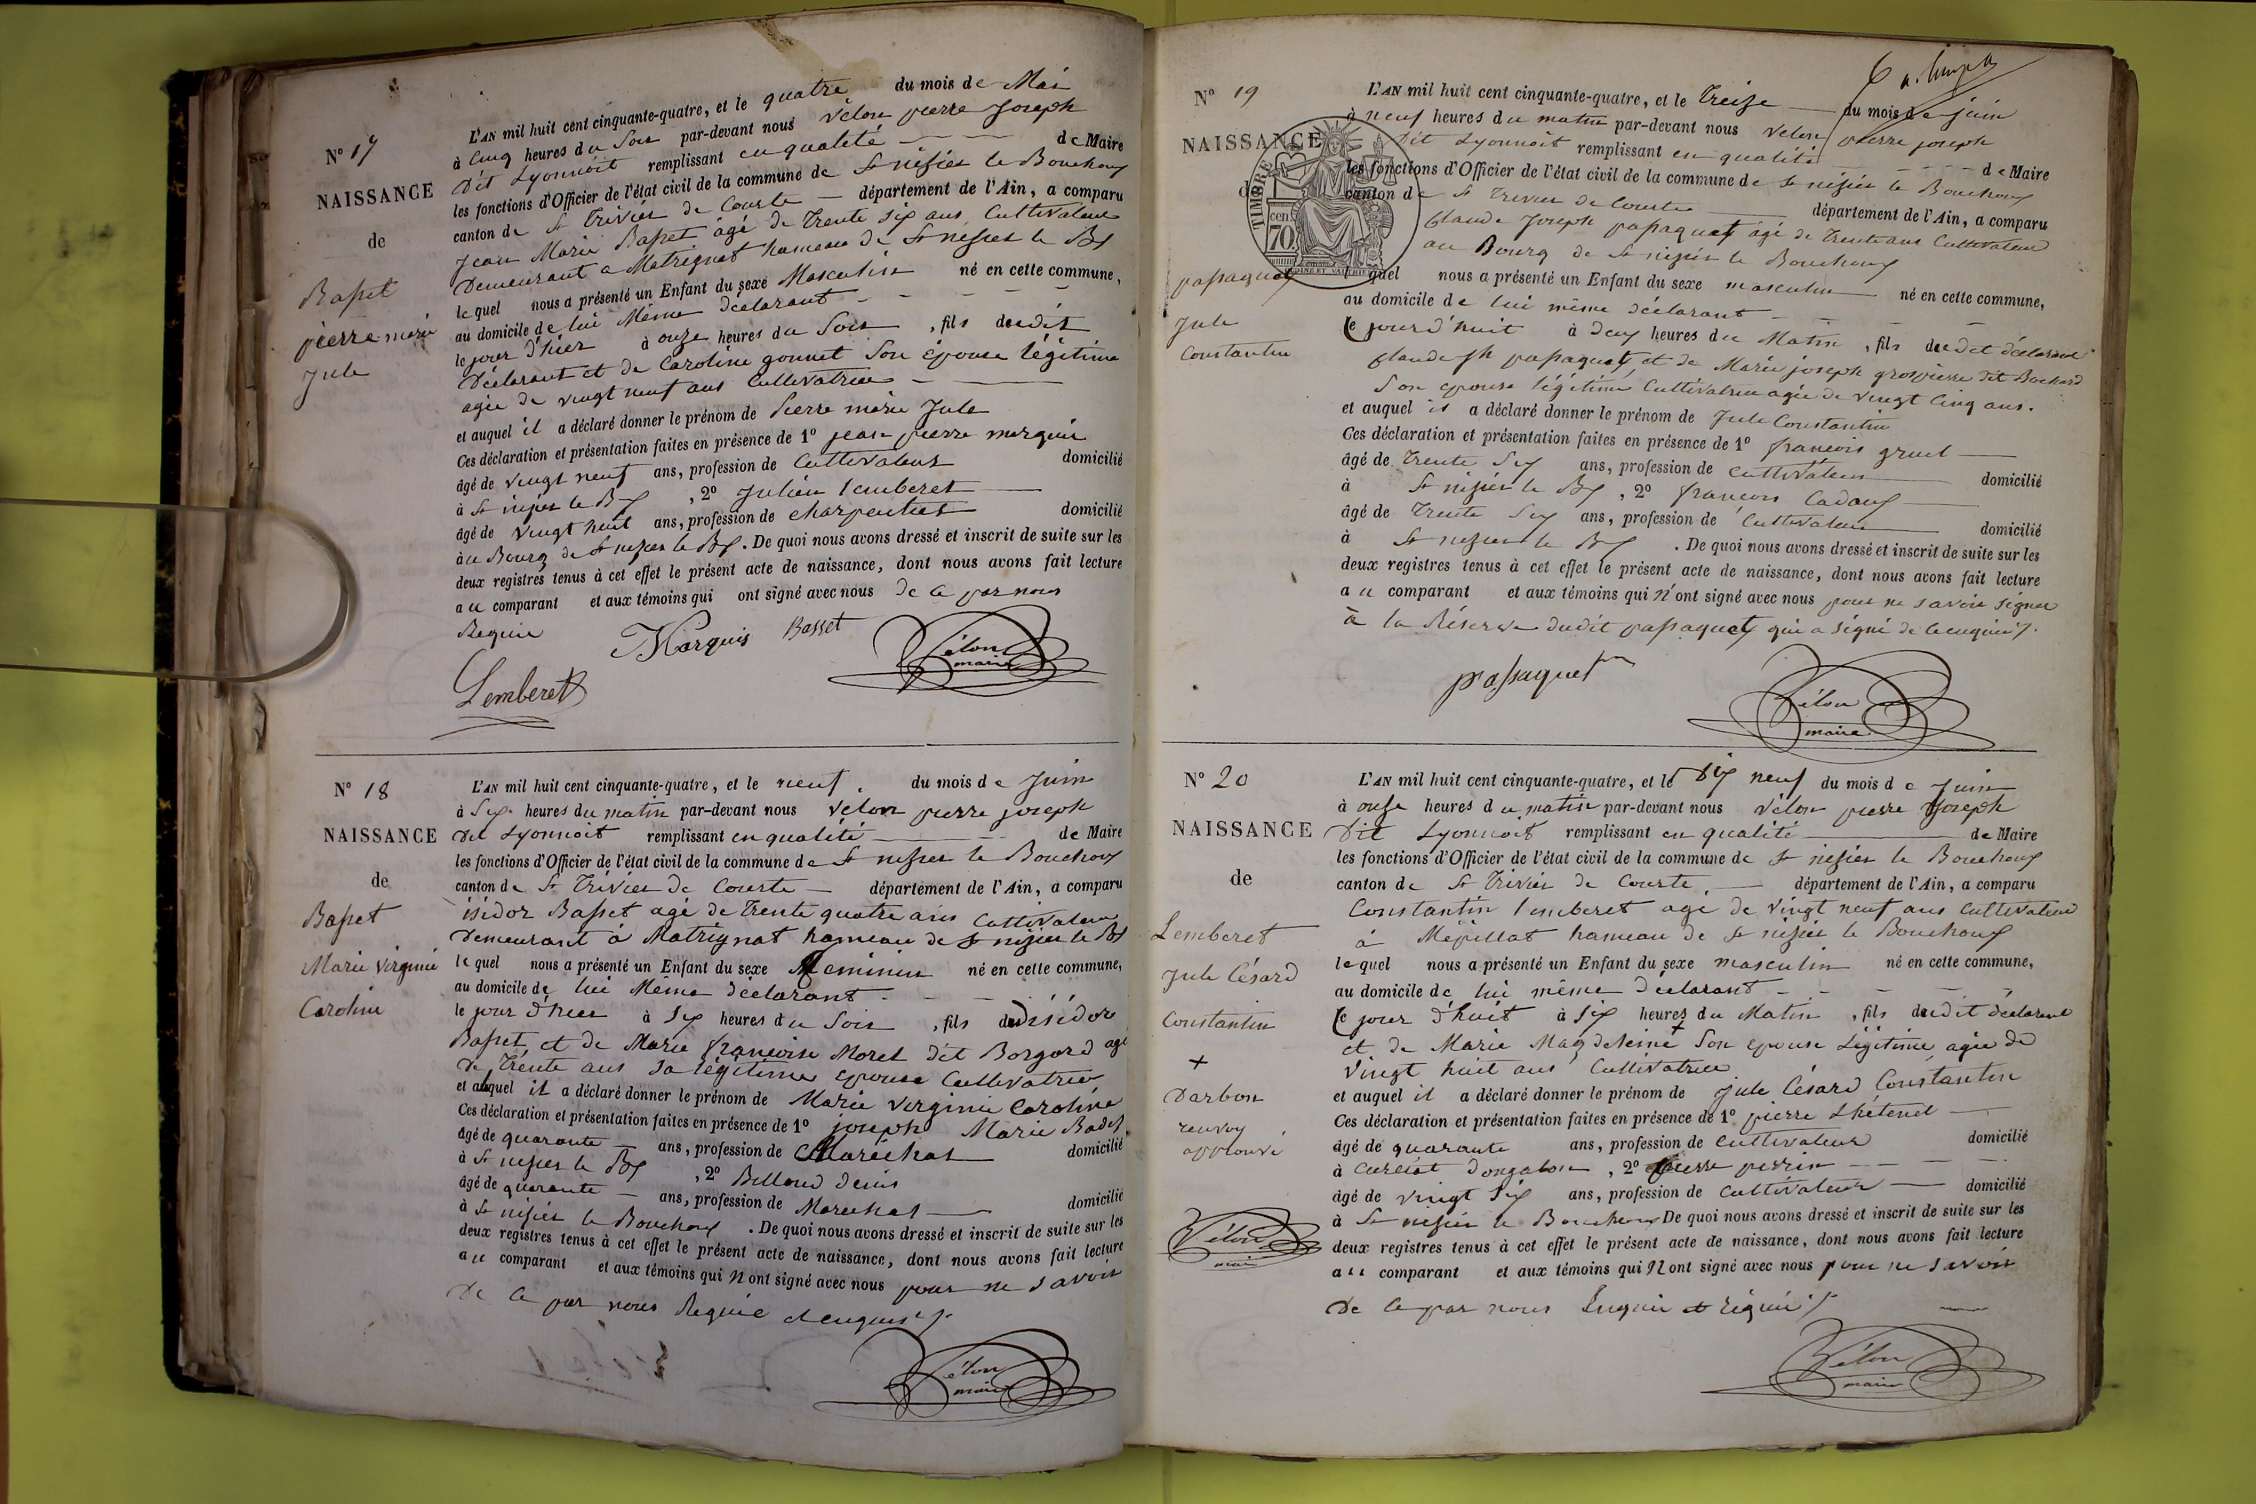 N° 17
NAISSANCE
de
Basset
pierre marie
Jule
L'AN mil huit cent cinquante-quatre, et le quatre du mois de Mai
à Cinq heures du Soir par-devant nous Vélon pierre Joseph
Dit Lyonnoit remplissant en qualité de Maire
les fonctions d'Officier de l'état civil de la commune de St nisier le Bouchoux
canton de St Trivier de Courte département de l'Ain, a comparu
Jean Marie Basset âgé de Trente six ans, Cultivateur
Demeurant a Matrignat hameau de St nisier le Bx
lequel nous a présenté un Enfant du sexe Masculin né en cette commune,
au domicile de lui Même déclarant
le jour d'hier à onze heures du Soir, fils dudit
Déclarant et de Caroline gonnet Son épouse légitime
agée de vingt neuf ans Cultivatrice
et auquel il a déclaré donner le prénom de Pierre marie Jule
Ces déclaration et présentation faites en présence de 1° jean pierre marquis
âgé de vingt neuf ans, profession de Cultivateur domicilié
à St nisier le Bx, 2° Julien Lemberet
âgé de vingt huit ans, profession de charpentier domicilié
à au Bourg de St nisier le Bx. De quoi nous avons dressé et inscrit de suite sur les
deux registres tenus à cet effet le présent acte de naissance, dont nous avons fait lecture
au comparant et aux témoins qui ont signé avec nous de ce par nous
Requis
Marquis Basset Vélon
maire
Lemberet
N° 18
NAISSANCE
de
Basset
Marie Virginie
Caroline
L'AN mil huit cent cinquante-quatre, et le neuf du mois de Juin
à Six heures du matin par-devant nous Vélon pierre joseph
Dit Lyonnoit remplissant en qualité de Maire
les fonctions d'Officier de l'état civil de la commune de St nisier le Bouchoux
canton de St Trivier de Courte département de l'Ain, a comparu
isidor Basset agé de Trente quatre ans Cultivateur
Demeurant à Matrignat hameau de St nisier le Bx
lequel nous a présenté un Enfant du sexe féminin né en cette commune,
au domicile de lui Même déclarant
le jour d'hier à Six heures du Soir, fils d'isidore
Basset et de Marie françoise Morel dit Borgard agé
de Trente ans sa légitime epouse Cultivatrice
et auquel il a déclaré donner le prénom de Marie Virginie Caroline
Ces déclaration et présentation faites en présence de 1° joseph Marie Badet
âgé de quarante ans, profession de Maréchal domicilié
à St nisier le Bx, 2° Billoud denis
âgé de quarante ans, profession de Marechal domicilié
à St nisier le Bouchoux. De quoi nous avons dressé et inscrit de suite sur les
deux registres tenus à cet effet le présent acte de naissance, dont nous avons fait lecture
au comparant et aux témoins qui n'ont signé avec nous pour ne savoir
De ce par nous Requie et enquis
Vélon
maire
N° 19
NAISSANCE
de
TIMBRE
cen
70.
passaquet
Jule
Constantin
L'AN mil huit cent cinquante-quatre, et le Treize du mois de juin
à neuf heures du matin par-devant nous Vélon pierre joseph
Dit Lyonnoit remplissant en qualité de Maire
les fonctions d'Officier de l'état civil de la commune de St nisier le Bouchoux
canton de St Trivier de Courte département de l'Ain, a comparu
Claude Joseph passaquet âgé de Trente ans Cultivateur
au Bourg de St nisier le Bouchoux
lequel nous a présenté un Enfant du sexe masculin né en cette commune,
au domicile de lui même déclarant
Ce jourd'huit à deux heures du Matin, fils dudit déclarant
Claude jh passaquet et de Marie joseph grospierre dit Bochard
Son epouse légitime Cultivatrice agée de vingt Cinq ans.
et auquel il a déclaré donner le prénom de Jule Constantin
Ces déclaration et présentation faites en présence de 1° françois gruel
âgé de Trente Six ans, profession de Cultivateur domicilié
à St nisier le Bx, 2° françois Cadoux
âgé de Trente Six ans, profession de Cultivateur domicilié
à St nisier le Bx. De quoi nous avons dressé et inscrit de suite sur les
deux registres tenus à cet effet le présent acte de naissance, dont nous avons fait lecture
au comparant et aux témoins qui n'ont signé avec nous pour ne savoir signer
à la Réserve dudit passaquet qui a signé de ce enquis
passaquet
Vélon
maire
N° 20
NAISSANCE
de
Lemberet
Jule Césard
Constantin
+
Darbon
renvoy
approuvé
Vélon
maire
L'AN mil huit cent cinquante-quatre, et le Dix neuf du mois de Juin
à onze heures du matin par-devant nous Vélon pierre Joseph
Dit Lyonnoit remplissant en qualité de Maire
les fonctions d'Officier de l'état civil de la commune de St nisier le Bouchoux
canton de St Trivier de Courte. département de l'Ain, a comparu
Constantin Lemberet agé de vingt neuf ans Cultivateur
à Mépillat hameau de St nisier le Bouchoux
lequel nous a présenté un Enfant du sexe masculin né en cette commune,
au domicile de lui même déclarant
Ce jour d'huit à Six heures du Matin, fils dudit déclarant
et de Marie Magdeleine + Son epouse Légitime agée de
Vingt huit ans Cultivatrice
et auquel il a déclaré donner le prénom de Jule Césard Constantin
Ces déclaration et présentation faites en présence de 1° pierre
âgé de quarante ans, profession de Cultivateur domicilié
à Curciat Dongalon, 2° pierre perrin
âgé de vingt Six ans, profession de Cultivateur domicilié
à St nisier le Bouchoux De quoi nous avons dressé et inscrit de suite sur les
deux registres tenus à cet effet le présent acte de naissance, dont nous avons fait lecture
au comparant et aux témoins qui n'ont signé avec nous pour ne savoir
De ce par nous Enquis et Requis
Vélon
maire